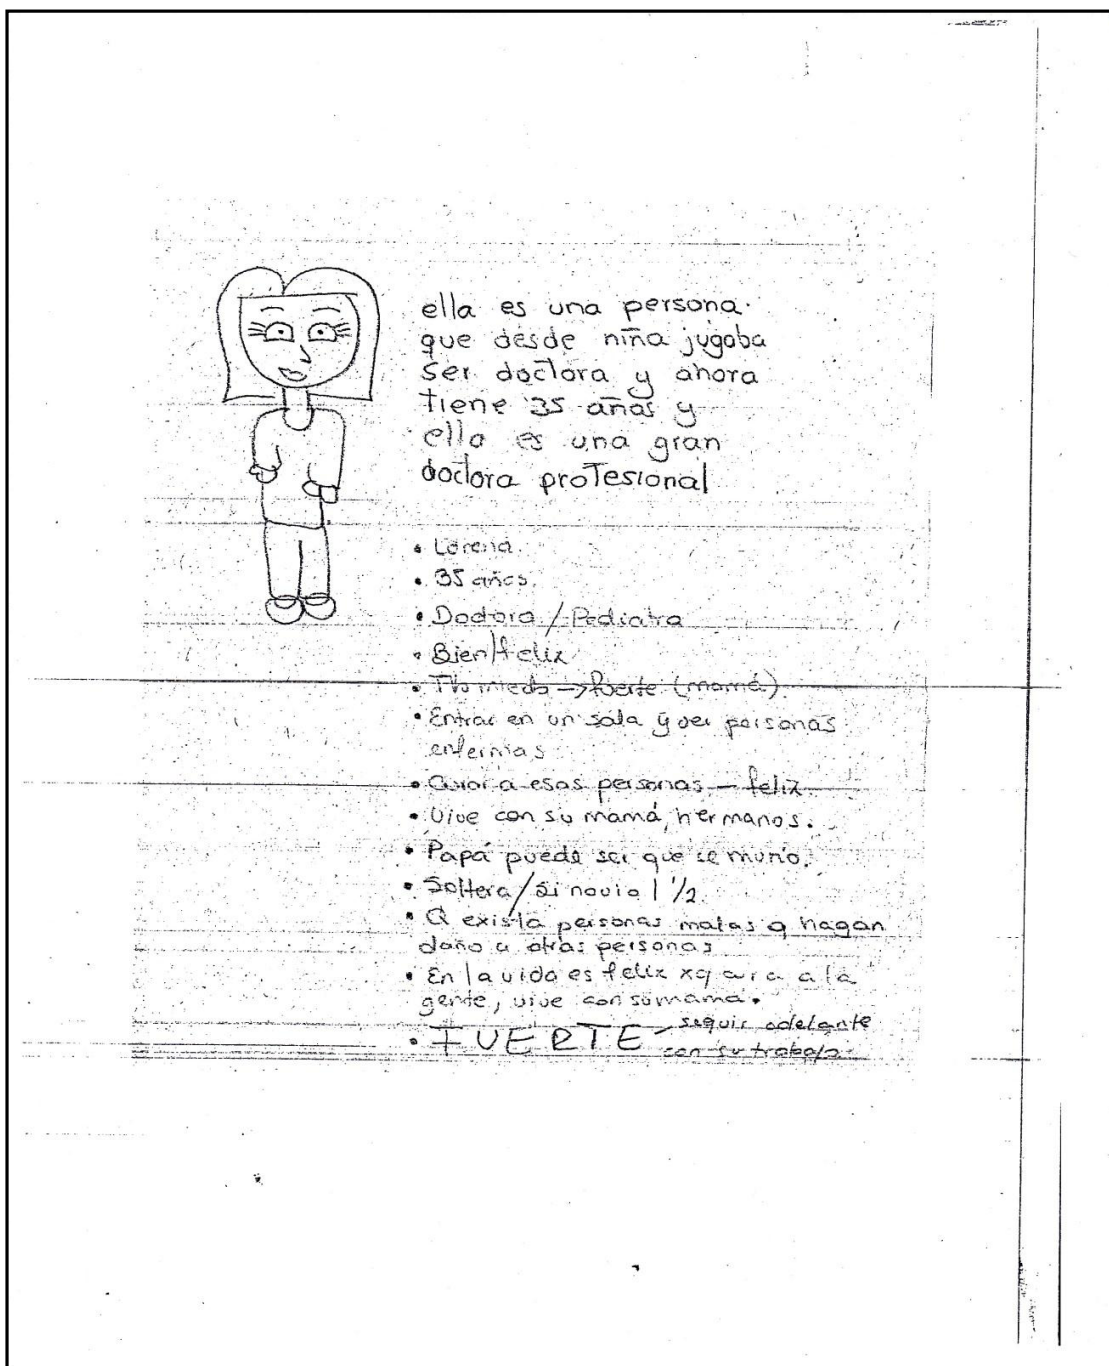 ella es una persona
que desde niña jugaba
ser doctora y ahora
tiene 35 años y
ella es una gran
doctora profesional
• Lorena.
• 35 años.
• Doctora / Pediatra
• Bien/feliz
• miedo → fuerte (mamá)
• Entrar en un sala y ver personas
enfermas
• Curar a esas personas – feliz
• Vive con su mamá, hermanos.
• Papá puede ser que se murió.
• Soltera / Si novio 1 1/2
• Q exista personas malas q hagan
daño a otras personas
• En la vida es feliz xq cura a la
gente, vive con su mama.
• FUERTE seguir adelante
con su trabajo